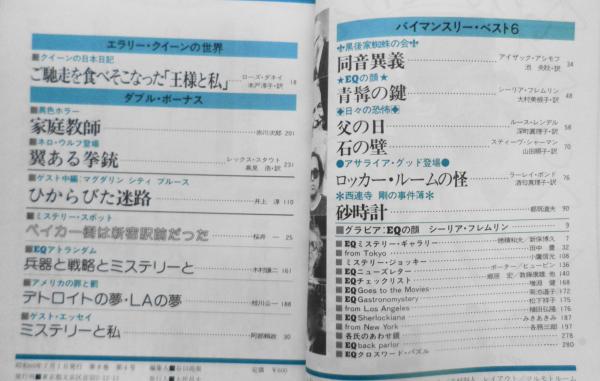 エラリー・クイーンの世界
■クイーンの日本日記
ご馳走を食べそこなった「王様と私」
ローズ・ダネイ
木戸淳子・訳 18
ダブル・ボーナス
■異色ホラー
家庭教師 赤川次郎 201
■ネロ・ウルフ登場
翼ある拳銃 レックス・スタウト
高見 浩・訳 231
■ゲスト中編:マグダリン シティ ブルース
ひからびた迷路 井上 淳 110
■ミステリー・スポット
ベイカー街は新宿駅前だった 桜井 一 25
■EQアトランダム
兵器と戦略とミステリーと 木村譲二 161
■アメリカの罪と罰
デトロイトの夢・LAの夢 枝川公一 188
■ゲスト・エッセイ
ミステリーと私 阿部頼政 30
定価 ¥600
バイマンスリー・ベスト6
黒後家蜘蛛の会
同音異義 アイザック・アシモフ
池 央耿・訳 34
★EQの顔★
青髯の鍵 シーリア・フレムリン
大村美根子・訳 48
◆日々の恐怖◆
父の日 ルース・レンデル
深町眞理子・訳 58
石の壁 スティーヴ・シャーマン
山田順子・訳 70
●アサライア・グッド登場●
ロッカー・ルームの怪 ラーレイ・ボンド
酒匂真理子・訳 76
＊西連寺 剛の事件簿＊
砂時計 都筑道夫 90
■グラビア:EQの顔 シーリア・フレムリン 9
■EQミステリー・ギャラリー 徳積和夫/新保博久 7
■from Tokyo 田中 豊 32
■ミステリー・ジョッキー 小鷹信光 108
■EQニューズレター ポーター/ヒュービン 136
■EQチェックリスト 郷原 宏/数藤康雄 他 140
■EQ Goes to the Movies 増淵 健 168
■EQ Gastronomystery 菊池道子 172
■from Los Angeles 松下祥子 175
■EQ Sherlockiana 植田弘隆 176
■from New York みきあきみ 197
■各氏のあわせ鏡 各務三郎 198
■EQ back parlor 278
■EQクロスワード・パズル 280